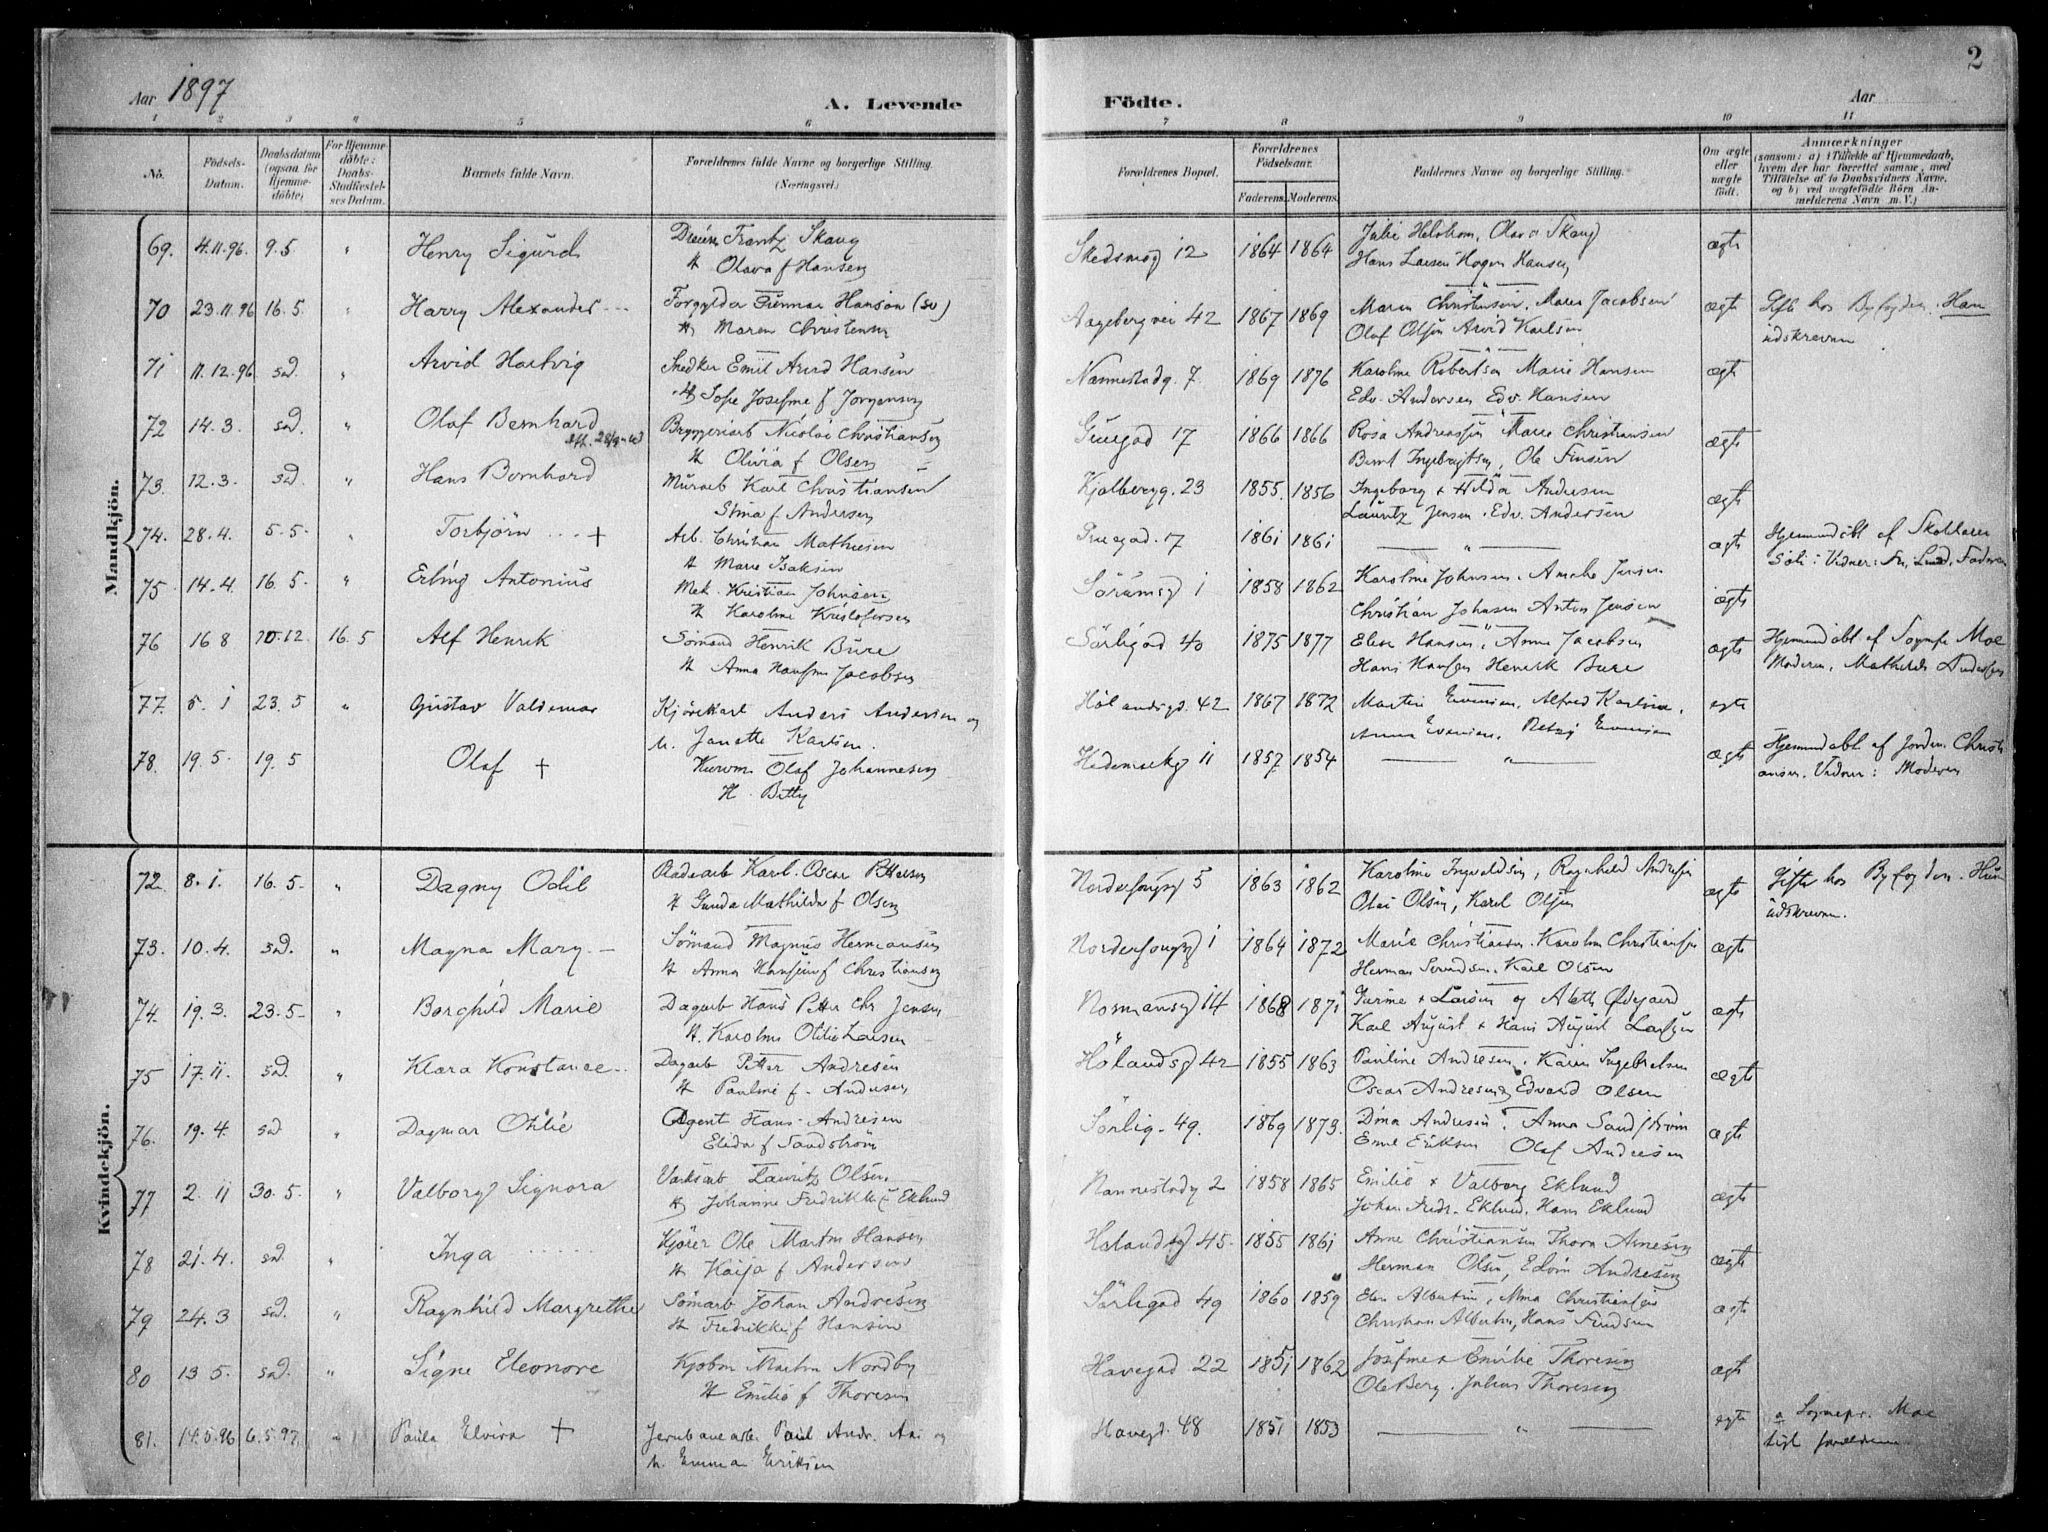 2
Aar 1897
A. Levende Födte.
Aar
1 2 3 4 5 6 7 8 9 10 11
No.
Födsels-Datum.
Daabsdatum (ogsaa for Hjemme-döbte)
For Hjemme-döbte: Daabs-Stadfæstel-ses Datum.
Barnets fulde Navn.
Forældrenes fulde Navne og borgerlige Stilling.
(Næringsvei.)
Forældrenes Bopæl.
Forældrenes Födselsaar.
Faderens. Moderens.
Faddernes Navne og borgerlige Stilling.
Om ægte eller uægte födt.
Anmærkninger
(saasom: a) i Tilfælde af Hjemmedaab, hvem der har forrettet samme, med Tilföielse af to Daabsvidners Navne, og b) ved uægtefödte Börn An-melderens Navn m. V.)
Mandkjön.
69. 4.11.96. 9.5 " Henry Sigurd Frantz Skaug Skedsmog 12 1864 1864 Olava Skaug ægte
H Olava f Hansen Hans Larsen Hagen Hansen
70 23.11.96 16.5. " Harry Alexander Forgylder Gunnar Hanson (sv) Aagebergvei 42 1867 1869 Maren Christensen, Maren Jacobsen ægte Gifte hos Byfogden. Han
H Maren Christensen Olaf Olsen Arvid Karlsen udskreven
71 11.12.96 sad. " Arvid Hartvig Snedker Emil Arvid Hansen Nannestadg. 7. 1869 1876 Karoline Robertsen Marie Hansen ægte
H Sofie Josefine f Jørgensen Edv. Andersen Edv. Hansen
72 14.3. sad. " Olaf Bernhard Bryggeriarb Nicolai Christiansen Gruegad 17 1866 1866 Rosa Andreassen Marie Christiansen ægte
H Olivia f Olsen Bernt Ingebrigtsen, Ole Finsen
73. 12.3. sad. " Hans Bernhard Murarb Karl Christiansen Kjølbergg. 23 1855. 1856 Ingeborg + Hilda Andresen ægte
Stina f Andersen Lauritz Jensen. Edv. Andersen
74. 28.4. 5.5. " Torbjörn + Arb. Christian Mathiesen Gruegad. 17 1861 1861 " ægte Hjemmedøbt af
H Marie Isaksen
75 14.4. 16.5. " Erling Antonius Mek. Kristian Johnsen Sörumsg 1 1858 1862 Karoline Johnsen. Amalie Jensen ægte
H Karoline Kristofersen Christian Johnsen Anton Jensen
76 16 8 10.12. 16.5 Alf Henrik Sømand Henrik Bure Sörligad 40 1875 1877 Elise Hansen, Anna Jacobsen ægte Hjemmedøbt af Sognepr Moe
H Anna Jacobsen Hans Hansen Henrik Bure Moderen, Mathilde Andersen
77. 5.1 23.5 " Gustav Valdemar Kjörekarl Anders Andersen og Hølandsgd. 42 1867 1872 Martin Evensen, Alfred Karlsen. egte
h. Janette Karlsen. Anna Evensen, Evensen
78. 19.5. 19.5 Olaf + Olaf Johannesen Hedemarkg 11 1857 1854 " ægte Hjemmedøbt af Jordm. Christi
H. Betty ansen. Vidner: Moderen
Kvindekjön.
72. 8.1. 16.5. " Dagny Odil Karl Oscar Pettersen Norderhougsg 5 1863 1862 Karoline Ingvaldsen, Ragnhild Andresen ægte Gifte hos Byfogden. Hun
H Gunda Mathilda f Olsen Olai Olsen, Karl Olsen udskreven.
73. 10.4. sad. " Magna Mary Sömand Magnus Hermansen Norderhougsg 1 1864 1872 Marie Christiansen. Karoline Christiansen ægte
H Anna f Christiansen Herman Svendsen. Karl Olsen
74. 19.3. 23.5 " Borghild Marie Dagarb Hans Petter Chr Jensen Normansg 14 1868 1871 Larsen og Øidegaard ægte
H. Karoline Otilie Larsen Karl August + Hans August Larsen
75 17.11. sad. " Klara Konstance Dagarb Petter Andresen Hølandsg 42 1855 1863 Pauline Andresen. Karen Ingebretsen ægte
H Pauline f. Andersen Oscar Andresen Edvard Olsen
76. 19.4. sad " Dagmar Otilie Agent Hans Andresen Sörlig. 49. 1869 1873. Dina Andresen. Anna Sandström ægte
Elida f Sandström Emil Eriksen Olaf Andresen
77 2.11 30.5. " Valborg Signora Lauritz Olsen Nannestadg 2 1858 1865 Emilie + Valborg Eklund ægte
H Johanne Fredrikke f Eklund Johan Fredr. Eklund, Hans Eklund
78 21.4. sad " Inga Kjører Ole Martin Hansen Hølandsg 45 1855 1861 Anne Christiansen Thora Arnesen ægte
H Kaija f Andersen Herman Olsen, Edvin Andresen
79 24.3 sad. " Ragnhild Margrethe Sömarb Johan Andresen Sörligad 49 1860 1859 Elen Albertsen, Alma Christiansen ægte
H Fredrikke f Hansen Christian Albertsen, Hans Finsen
80 13.5. sad. " Signe Eleonore Kjøbm Martin Nordby Havegad 22 1851 1862 Josefine + Emilie Thoresen ægte
H Emilie f Thoresen Ole Berg. Julius Thoresen
81. 14.5.96 6.5.97 " Paula Elvira + Jernbanearb. Paul Andr. Aas og Havegd. 48 1851 1853 " egte a Sognepr. Moe
h. Emma Eriksen tigl forældrene